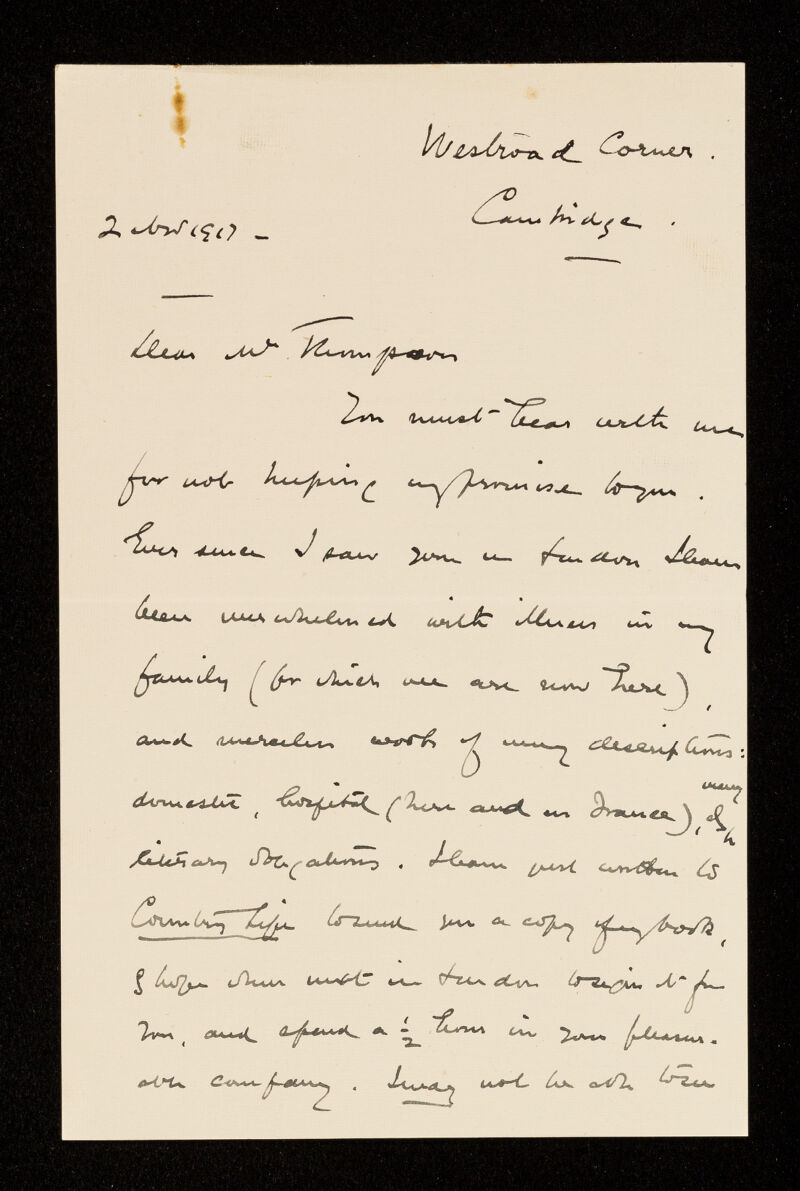 Westroad Corner.
Cambridge.
2 Nov 1917 -
Dear Mr Thompson
You must bear with me
for not keeping my promise to you.
Ever since I saw you in London I have
been overwhelmed with illness in my
family (for which we are now here),
and merciless work of many descriptions:
domestic, hospital (here and in France), &
many
literary obligations. I have just written to
Country Life to send you a copy of my book,
& hope when next in London to sign it for
you, and spend a ½ hour in your pleasur-
able company. I may not be able to see